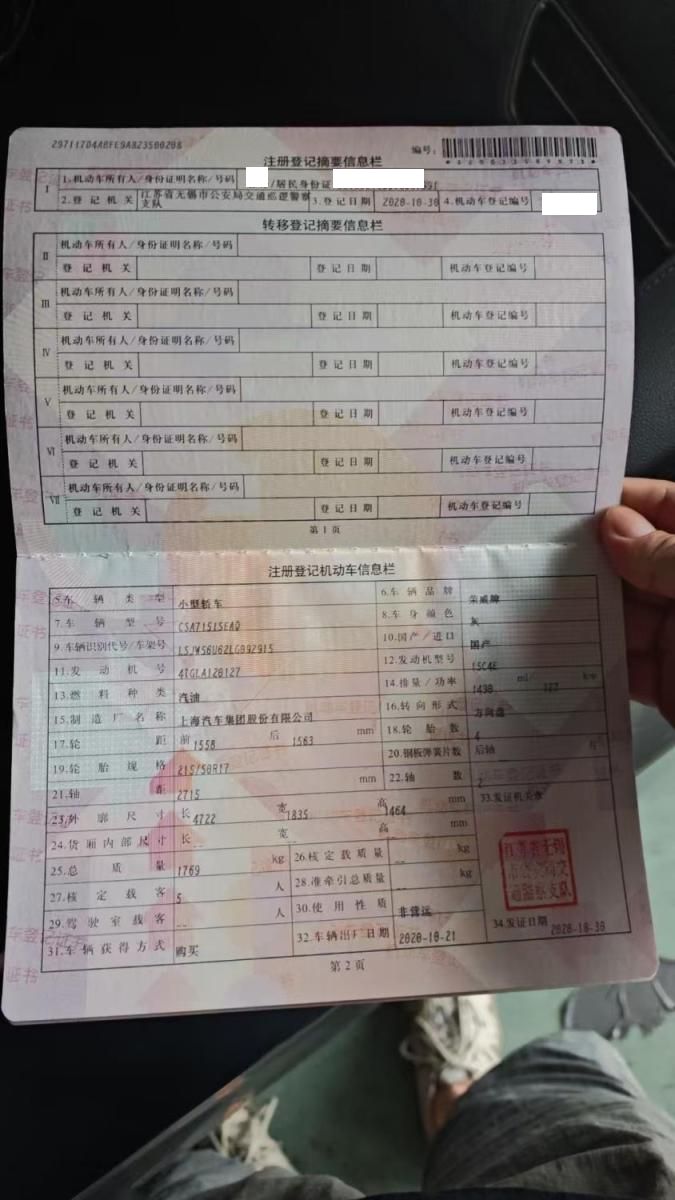 29711704A8FE9A823500208
编号:
注册登记摘要信息栏
I
1.机动车所有人/身份证明名称/号码 /居民身份证
2.登记机关 江苏省无锡市公安局交通巡逻警察支队 3.登记日期 2020-10-30 4.机动车登记编号
转移登记摘要信息栏
II
机动车所有人/身份证明名称/号码
登记机关 登记日期 机动车登记编号
III
机动车所有人/身份证明名称/号码
登记机关 登记日期 机动车登记编号
IV
机动车所有人/身份证明名称/号码
登记机关 登记日期 机动车登记编号
V
机动车所有人/身份证明名称/号码
登记机关 登记日期 机动车登记编号
VI
机动车所有人/身份证明名称/号码
登记机关 登记日期 机动车登记编号
VII
机动车所有人/身份证明名称/号码
登记机关 登记日期 机动车登记编号
第1页
注册登记机动车信息栏
5.车辆类型 小型轿车 6.车辆品牌 荣威牌
7.车辆型号 CSA7151SEAQ 8.车身颜色 灰
9.车辆识别代号/车架号 LSJW56U62LG092915 10.国产/进口 国产
11.发动机号 4TGLA120127 12.发动机型号 15C4E
13.燃料种类 汽油 14.排量/功率 1490 ml/ kw
15.制造厂名称 上海汽车集团股份有限公司 16.转向形式 方向盘
17.轮距 前 1558 后 1563 mm 18.轮胎数 4
19.轮胎规格 215/50R17 20.钢板弹簧片数 后轴 片
21.轴距 2715 mm 22.轴数 2
23.外廓尺寸 长 4722 宽 1835 高 1464 mm 33.发证机关章
24.货厢内部尺寸 长 -- 宽 -- 高 -- mm
25.总质量 1769 kg 26.核定载质量 -- kg
27.核定载客 5 人 28.准牵引总质量 -- kg
29.驾驶室载客 -- 人 30.使用性质 非营运
31.车辆获得方式 购买 32.车辆出厂日期 2020-10-21 34.发证日期 2020-10-30
江苏省无锡
市公安局交
通警察支队
第2页